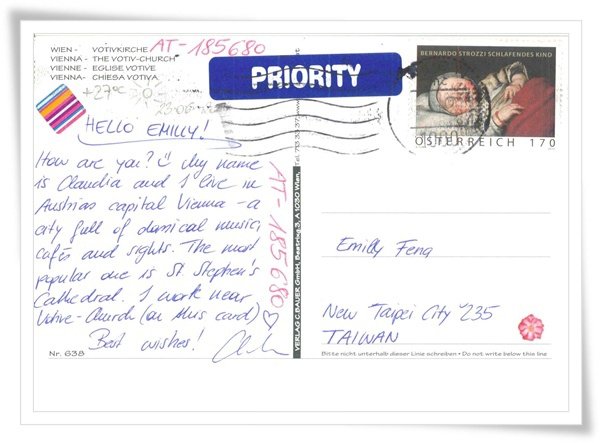 WIEN - VOTIVKIRCHE
VIENNA - THE VOTIV-CHURCH
VIENNE - EGLISE VOTIVE
VIENNA - CHIESA VOTIVA
AT-185680
+27°C
HELLO EMILLY!
How are you? My name
is Claudia and I live in
Austrias capital Vienna - a
city full of classical music,
cafés and sights. The most
popular one is St. Stephen's
Cathedral. I work near
Votive-Church (on this card) ♡
Best wishes!
Nr. 638
AT-185680
VERLAG C. BAUER GmbH, Beatrixg. 3, A 1030 Wien,
PRIORITY
BERNARDO STROZZI SCHLAFENDES KIND
ÖSTERREICH 170
Emilly Feng
New Taipei City 235
TAIWAN
Bitte nicht unterhalb dieser Linie schreiben • Do not write below this line